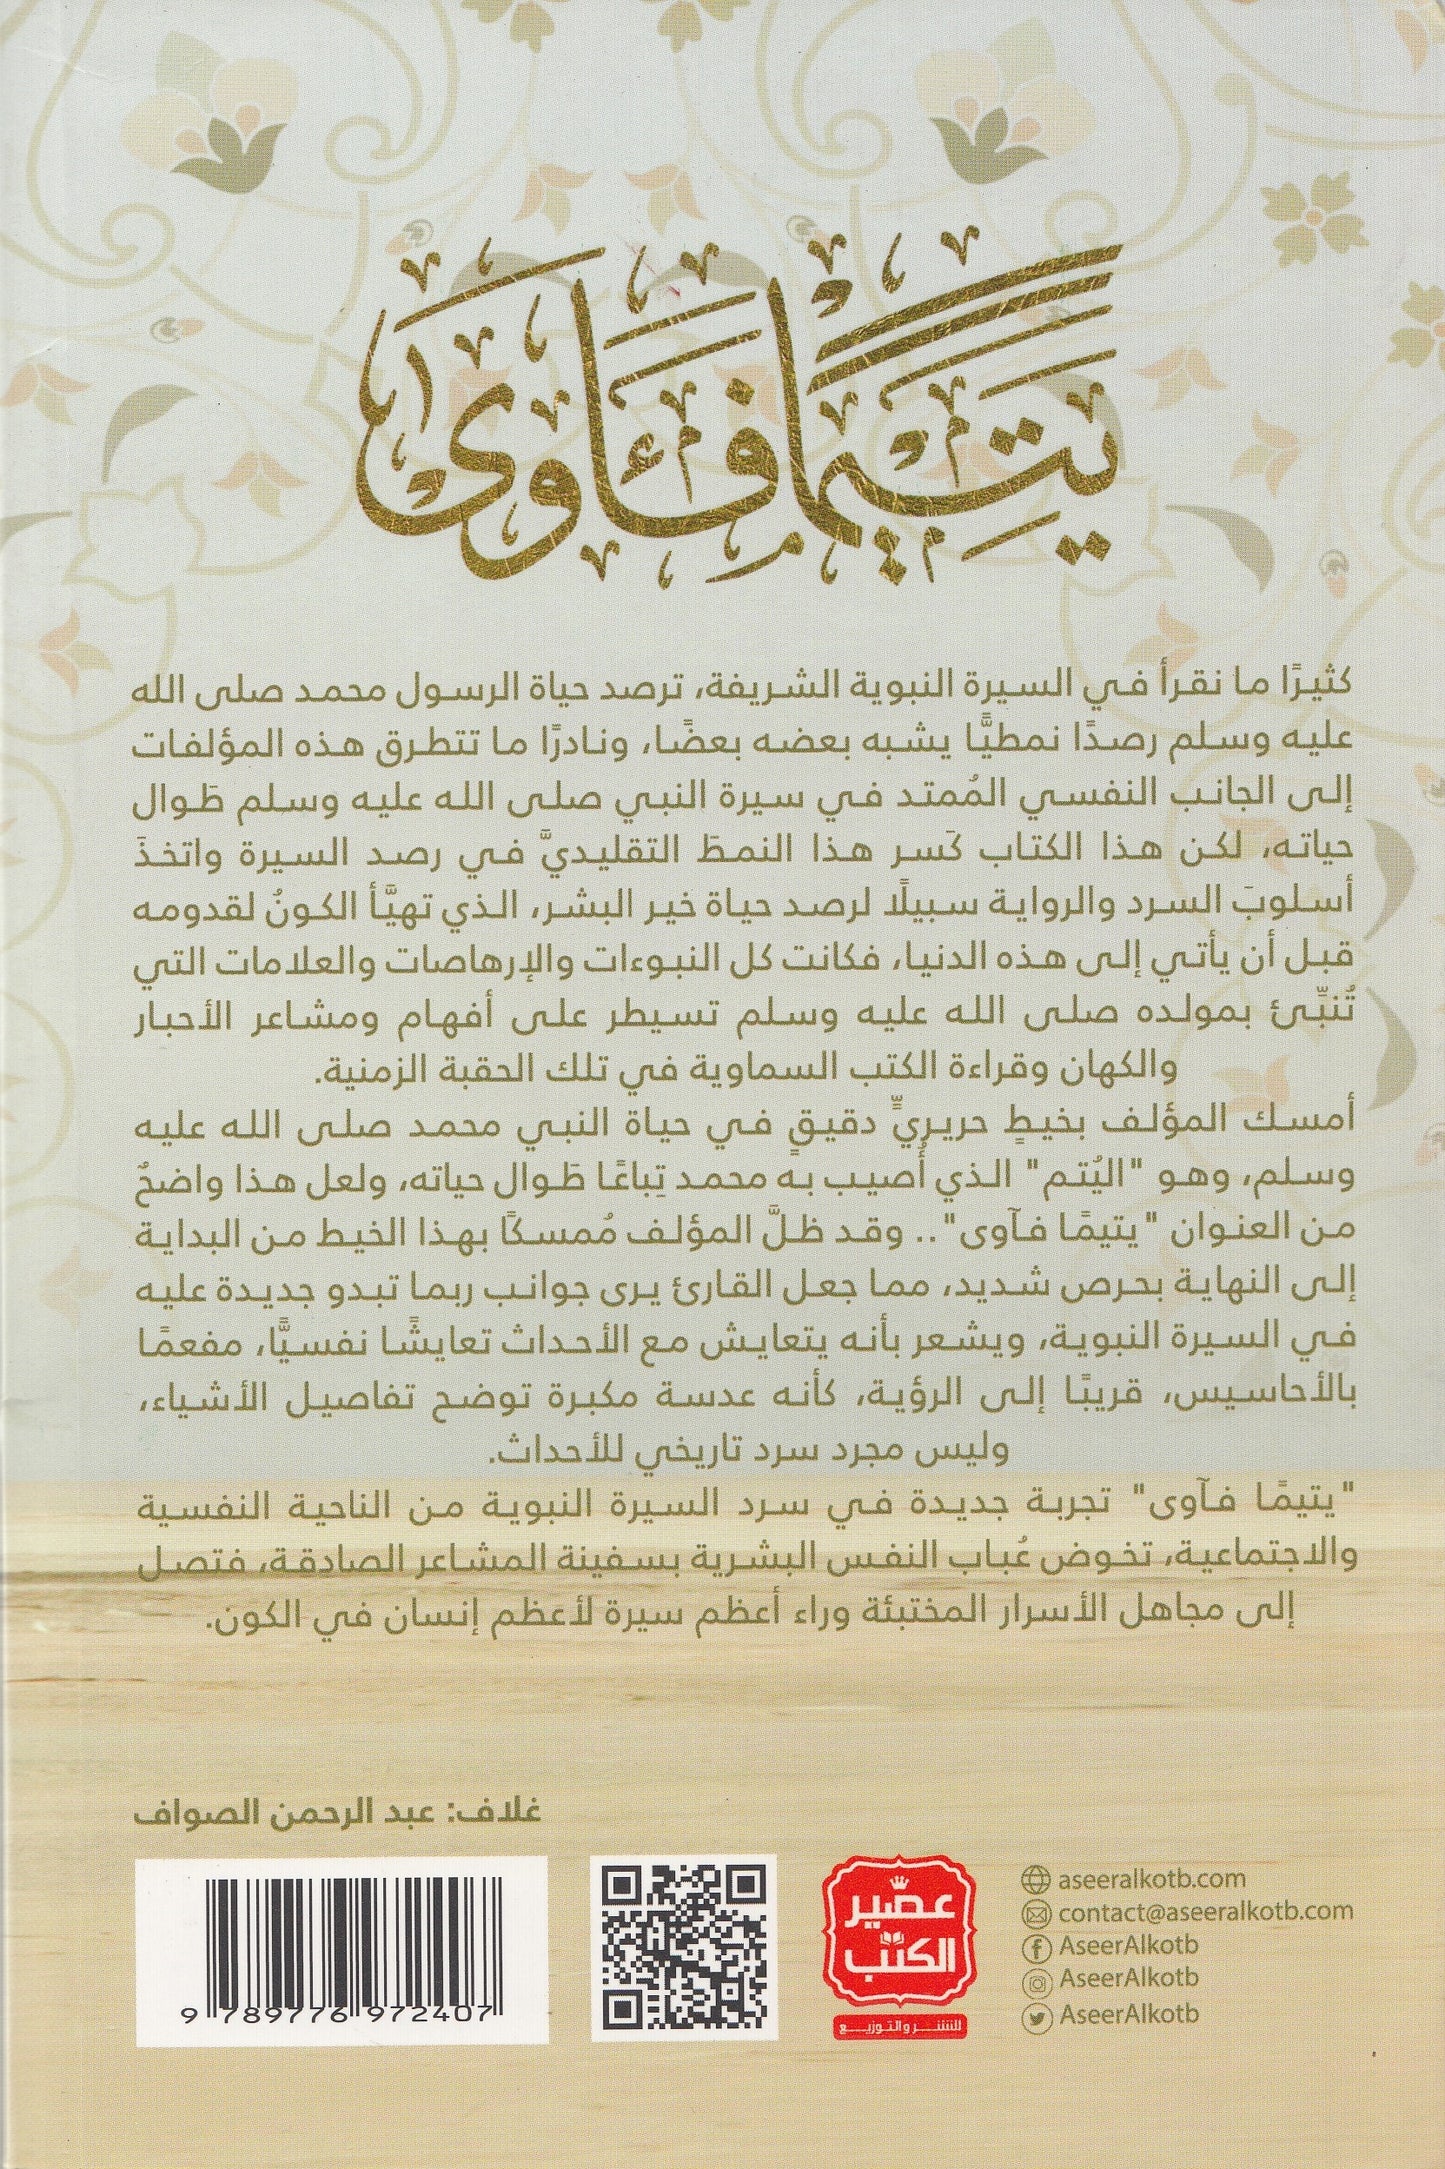 يتيما فآوى
كثيرًا ما نقرأ في السيرة النبوية الشريفة، ترصد حياة الرسول محمد صلى الله
عليه وسلم رصدًا نمطيًّا يشبه بعضه بعضًا، ونادرًا ما تتطرق هذه المؤلفات
إلى الجانب النفسي المُمتد في سيرة النبي صلى الله عليه وسلم طَوال
حياته، لكن هذا الكتاب كَسر هذا النمطَ التقليديَّ في رصد السيرة واتخذَ
أسلوبَ السرد والرواية سبيلًا لرصد حياة خير البشر، الذي تهيَّأ الكونُ لقدومه
قبل أن يأتي إلى هذه الدنيا، فكانت كل النبوءات والإرهاصات والعلامات التي
تُنبِّئ بمولده صلى الله عليه وسلم تسيطر على أفهام ومشاعر الأحبار
والكهان وقراءة الكتب السماوية في تلك الحقبة الزمنية.
أمسك المؤلف بخيطٍ حريريٍّ دقيقٍ في حياة النبي محمد صلى الله عليه
وسلم، وهو "اليُتم" الذي أُصيب به محمد تِباعًا طَوال حياته، ولعل هذا واضحٌ
من العنوان "يتيمًا فآوى".. وقد ظلَّ المؤلف مُمسكًا بهذا الخيط من البداية
إلى النهاية بحرص شديد، مما جعل القارئ يرى جوانب ربما تبدو جديدة عليه
في السيرة النبوية، ويشعر بأنه يتعايش مع الأحداث تعايشًا نفسيًّا، مفعمًا
بالأحاسيس، قريبًا إلى الرؤية، كأنه عدسة مكبرة توضح تفاصيل الأشياء،
وليس مجرد سرد تاريخي للأحداث.
"يتيمًا فآوى" تجربة جديدة في سرد السيرة النبوية من الناحية النفسية
والاجتماعية، تخوض عُباب النفس البشرية بسفينة المشاعر الصادقة، فتصل
إلى مجاهل الأسرار المختبئة وراء أعظم سيرة لأعظم إنسان في الكون.
غلاف: عبد الرحمن الصواف
aseeralkotb.com
contact@aseeralkotb.com
AseerAlkotb
AseerAlkotb
AseerAlkotb
عصير
الكتب
للنشر والتوزيع
9 789776 972407